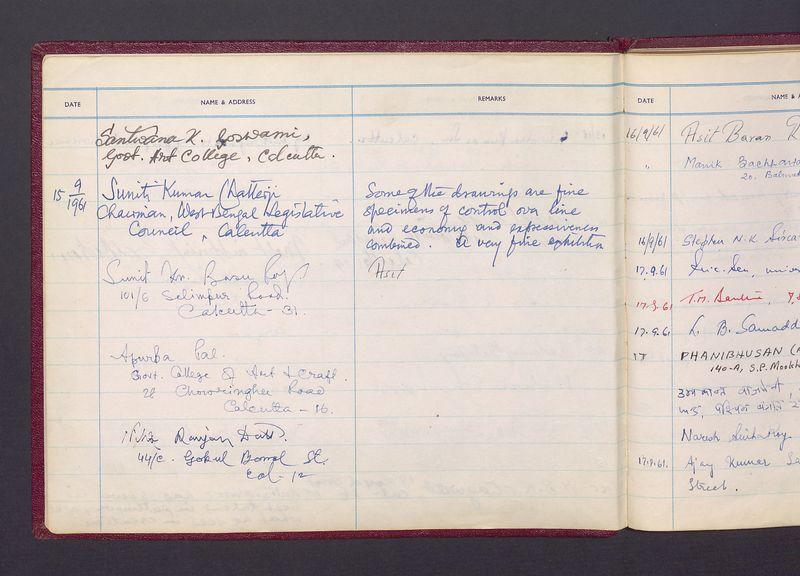 DATE NAME & ADDRESS REMARKS
Santwana K. Goswami,
Govt. Art College, Calcutta.
15 9/1961 Suniti Kumar Chatterji
Chairman, West Bengal Legislative
Council, Calcutta
Some of the drawings are fine
specimens of control over line
and economy and expressiveness
combined. A very fine exhibition
Sunit Kr. Basu Roy
101/C Selimpur Road.
Calcutta - 31.
Asit
Apurba Pal.
Govt. College of Art & Craft.
28 Chowringhee Road
Calcutta - 16.
Ranjan Dutt.
44/C. Gokul Boral St.
Cal - 12
DATE NAME &
16/9/61 Asit Baran
" Manik
20.
16/9/61 Stephen N.K.
17.9.61
17.9.61 T.M.
17.9.61 L. B. Samadd
17 PHANIBHUSAN
140-A, S.P. Mookh
Naresh
17.9.61. Ajay Kumar
Street.